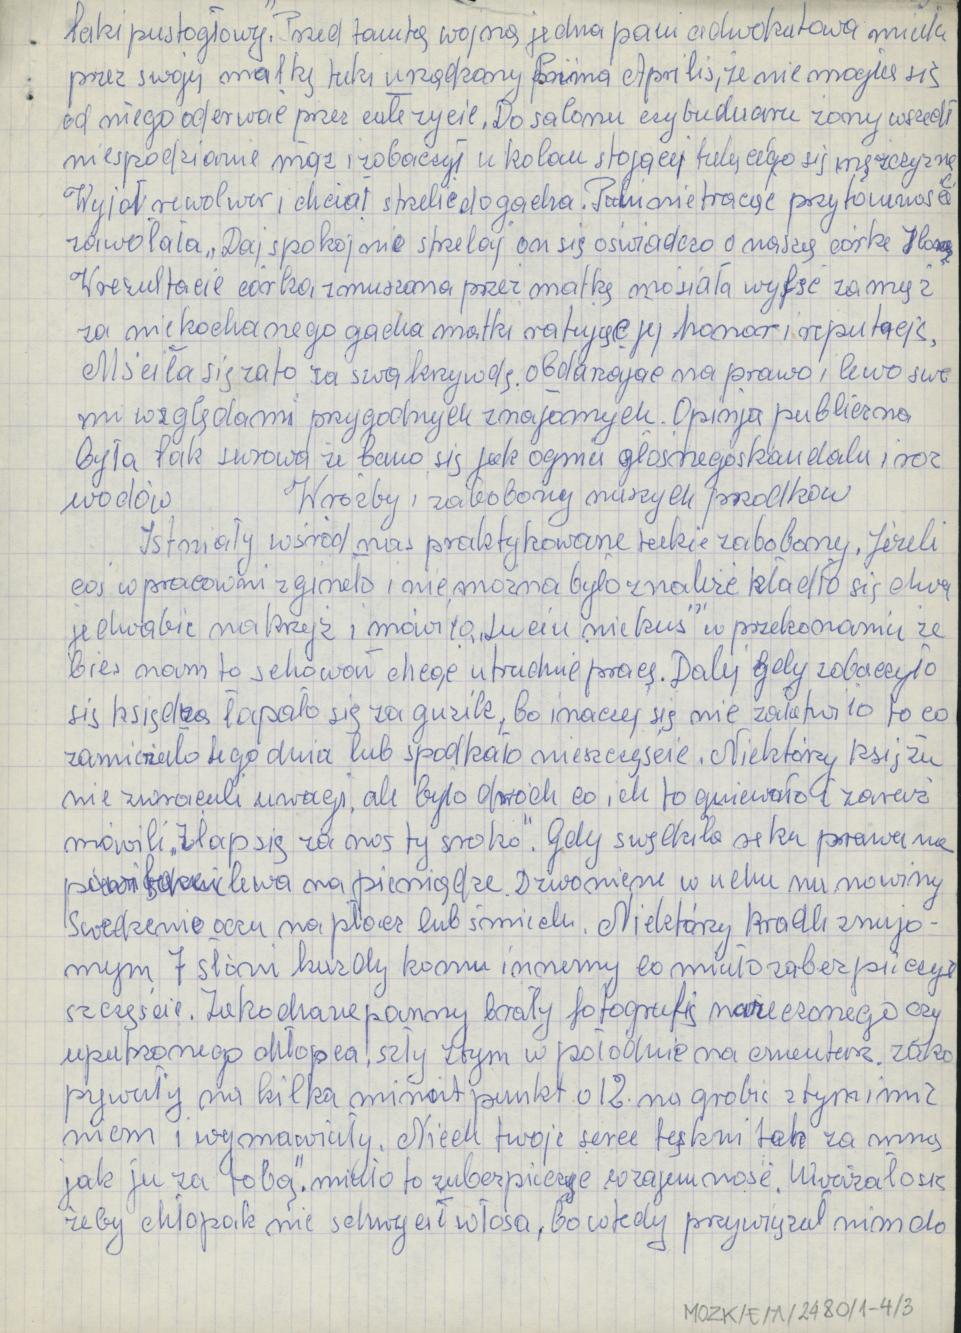 taki pustogłowy". Przed tamtą wojną jedna pani adwokatowa miała
przez swoją matkę taki urządzony Prima Aprilis, że nie mogła się
od niego oderwać przez całe życie. Do salonu czy buduaru żony wszedł
niespodzianie mąż i zobaczył u kolan stojącej tulącego się mężczyznę
Wyjął rewolwer i chciał strzelić do gacha. Pani nie tracąc przytomność
zawołała „Daj spokój nie strzelaj on się oświadcza o naszą córkę
W rezultacie córka zmuszona przez matkę musiała wyjść zamęż
za niekochanego gacha matki ratując jej honor i reputację,
Mściła się zato za swą krzywdę obdarzając na prawo i lewo swe
mi względami przygodnych znajomych. Opinja publiczna
była tak surowa że bano się jak ognia głośnego skandalu i roz
wodów Wróżby i zabobony naszych przodków
Istniały wśród nas praktykowane takie zabobony. Jeżeli
coś w pracowni zgineło i nie można było znaleźć kładło się dwa
jedwabie na krzyż i mówiło „ " w przekonaniu że
bies nam to schował chcąc utrudnić pracę. Dalij gdy zobaczyło
się księdza łapało się za guzik, bo inaczej się nie załatwiło to co
zamierzało tego dnia lub spodkało nieszczęście. Niektórzy księża
nie zwracali uwagi, ale było dwóch co ich to gniewało i zaraz
mówili „złap się za nos ty sroko". Gdy swędziła ręka prawa na
lewa na pieniądze. Dzwonienie w uchu na nowiny
Swędzenie oczu na płacz lub śmiech. Niektórzy kradli znajo-
mym 7 słoni każdy komu innemu co miało zabezpieczyć
szczęście. Zakochane panny brały fotografię narzeczonego czy
upatrzonego chłopca, szły z tym w południe na cmentarz. zako
pywały na kilka minut punkt o 12. na grobie z tym imie
niem i wymawiały. Niech twoje serce tęskni tak za mną
jak ja za tobą". miało to zabezpieczyć wzajemność. Uważało się
żeby chłopak nie schwycił włosa, bo wtedy przywiązał nim do
MOZK/E/A/2480/1-4/3